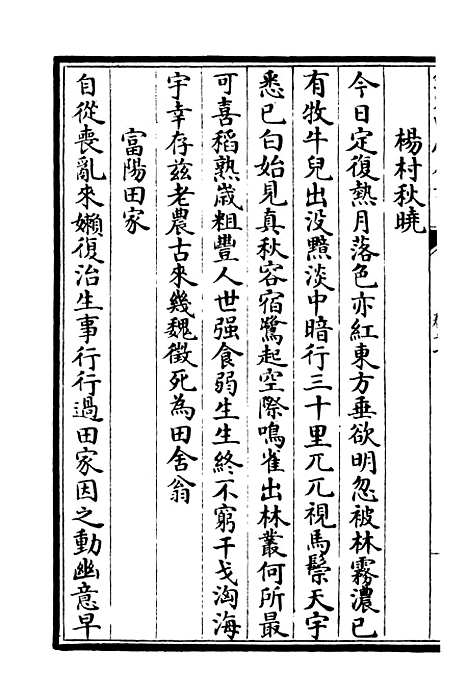 楊村秋曉
今日定復熱月落色亦紅東方垂欲明忽被林霧濃已
有牧牛兒出没黯淡中暗行三十里兀兀視馬鬃天宇
悉已白始見真秋容宿鷺起空際鳴雀出林叢何所最
可喜稻熟歲粗豐人世强食弱生生終不窮干戈淘海
宇幸存兹老農古來幾魏徵死為田舍翁
富陽田家
自從喪亂來嬾復治生事行行過田家因之動幽意早